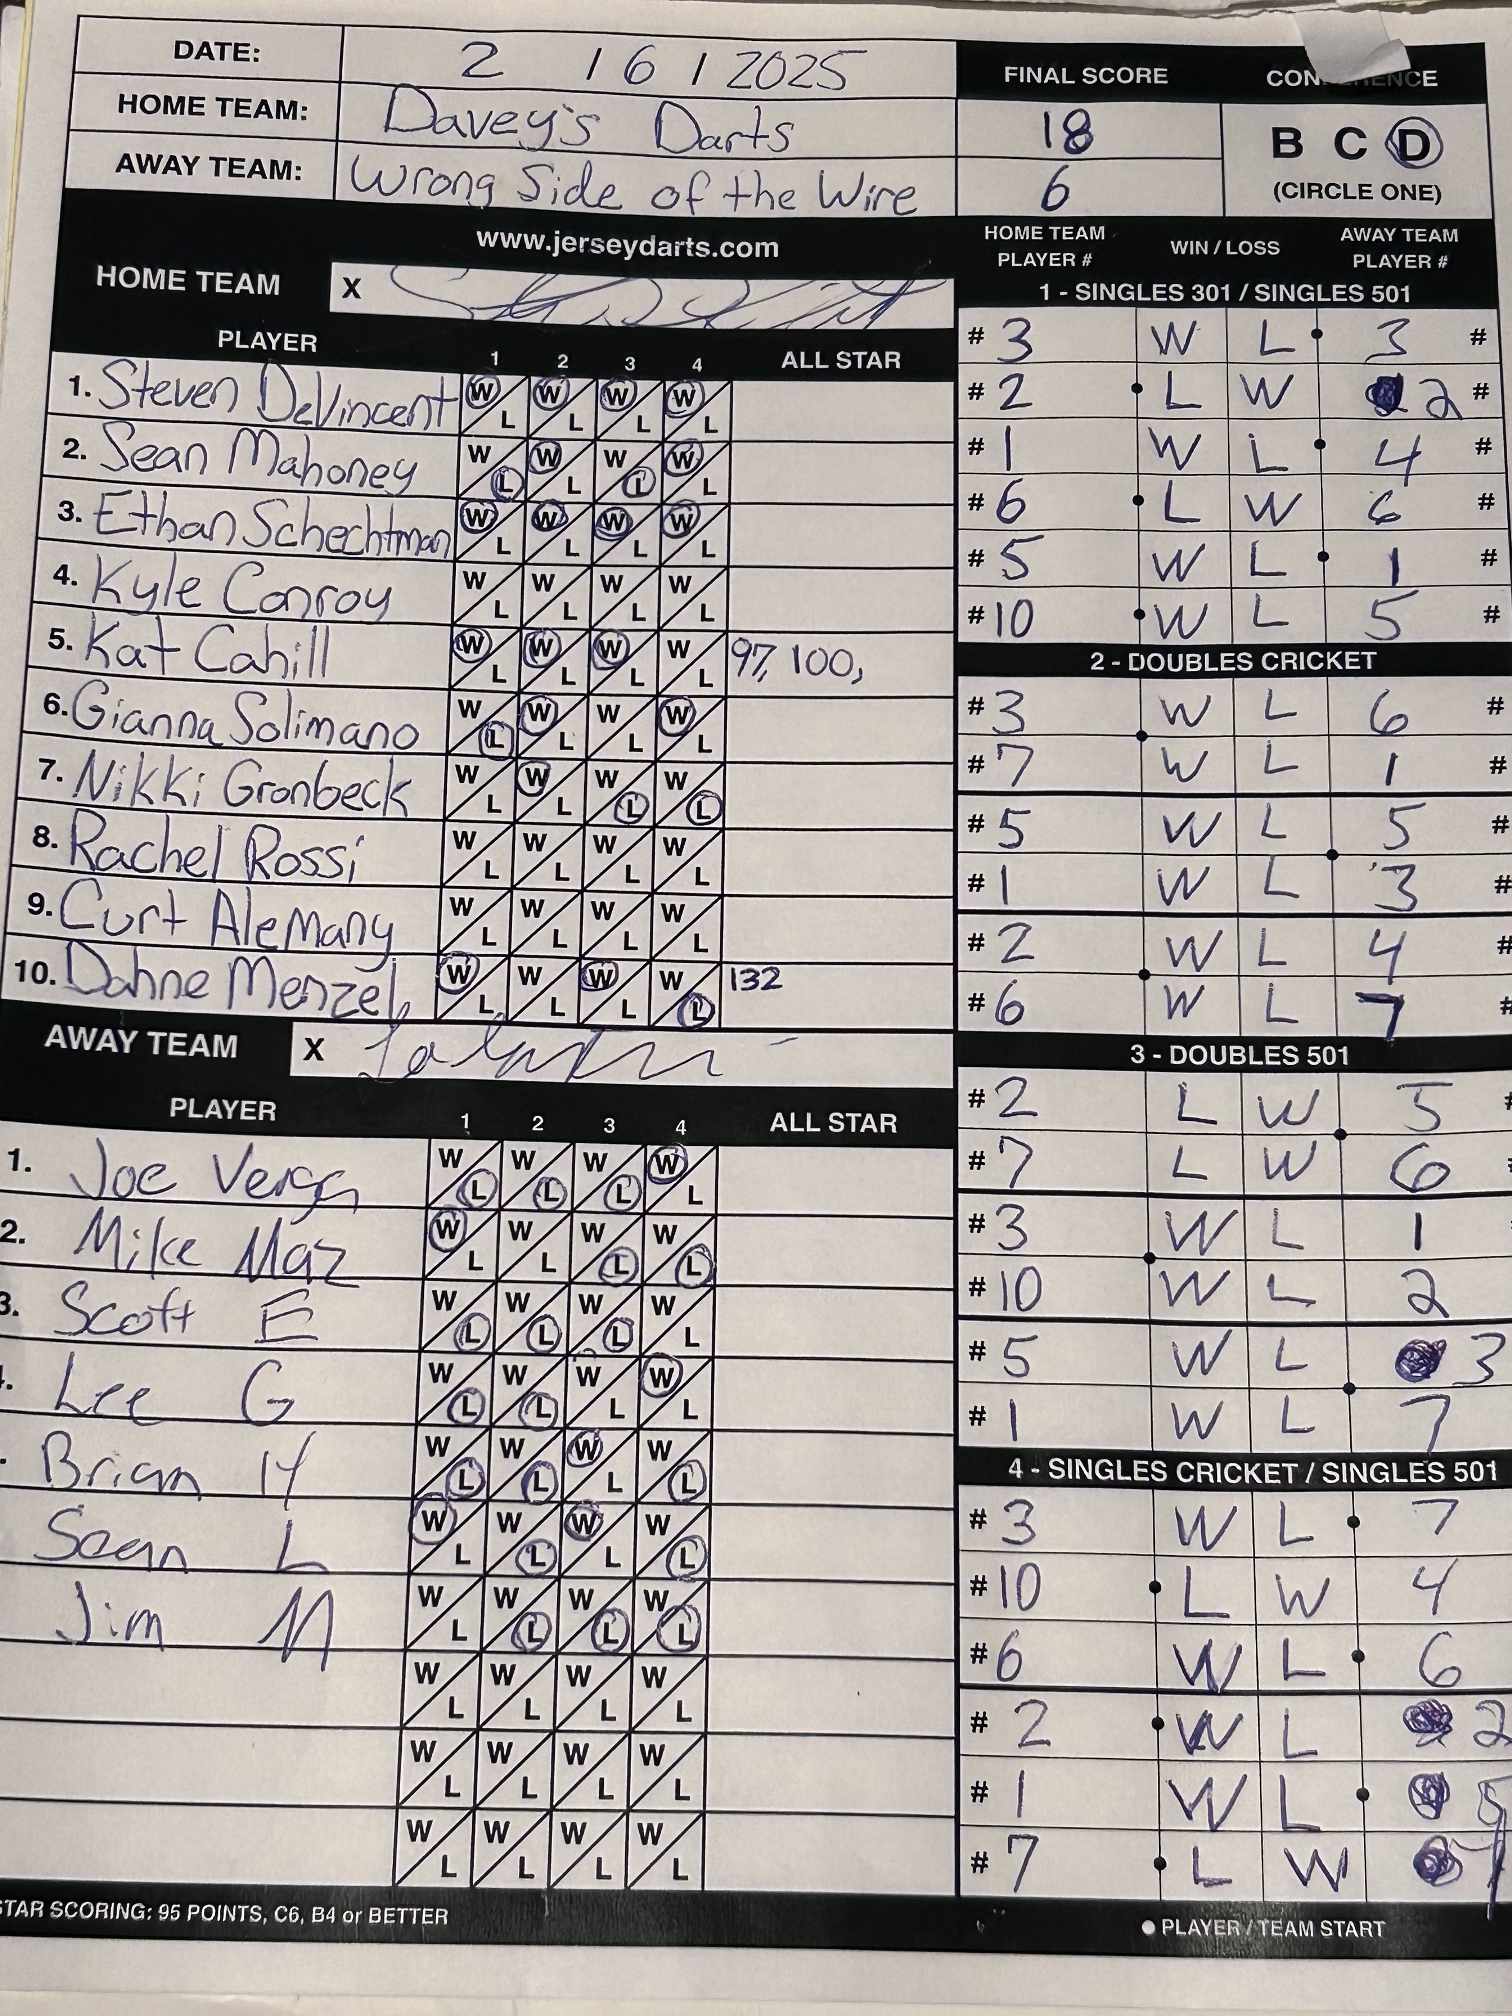 DATE: 2 / 6 / 2025
HOME TEAM: Davey's Darts
AWAY TEAM: Wrong Side of the Wire
FINAL SCORE
18
6
B C D
(CIRCLE ONE)
www.jerseydarts.com
HOME TEAM X
PLAYER 1 2 3 4 ALL STAR
1. Steven DeVincent W L W L W L W L
2. Sean Mahoney W L W L W L W L
3. Ethan Schechtman W L W L W L W L
4. Kyle Conroy W L W L W L W L
5. Kat Cahill W L W L W L W L 97, 100,
6. Gianna Solimano W L W L W L W L
7. Nikki Gronbeck W L W L W L W L
8. Rachel Rossi W L W L W L W L
9. Curt Alemany W L W L W L W L
10. Dahne Menzel W L W L W L W L 132
AWAY TEAM X
PLAYER 1 2 3 4 ALL STAR
1. Joe W L W L W L W L
2. Mike Maz W L W L W L W L
3. Scott E W L W L W L W L
Lee G W L W L W L W L
Brian H W L W L W L W L
Sean L W L W L W L W L
Jim M W L W L W L W L
W L W L W L W L
W L W L W L W L
W L W L W L W L
STAR SCORING: 95 POINTS, C6, B4 or BETTER
HOME TEAM PLAYER # WIN / LOSS AWAY TEAM PLAYER #
1 - SINGLES 301 / SINGLES 501
# 3 W L 3 #
# 2 L W 2 #
# 1 W L 4 #
# 6 L W 6 #
# 5 W L 1 #
# 10 W L 5 #
2 - DOUBLES CRICKET
# 3 W L 6 #
# 7 W L 1 #
# 5 W L 5 #
# 1 W L 3 #
# 2 W L 4 #
# 6 W L 7 #
3 - DOUBLES 501
# 2 L W 5
# 7 L W 6
# 3 W L 1
# 10 W L 2
# 5 W L 3
# 1 W L 7
4 - SINGLES CRICKET / SINGLES 501
# 3 W L 7
# 10 L W 4
# 6 W L 6
# 2 W L 2
# 1 W L 5
# 7 L W 1
PLAYER / TEAM START